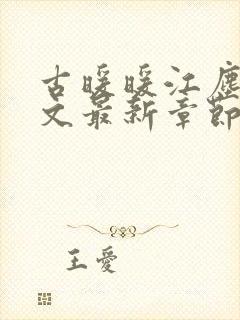 古暖暖江塵
文最新章節
王愛